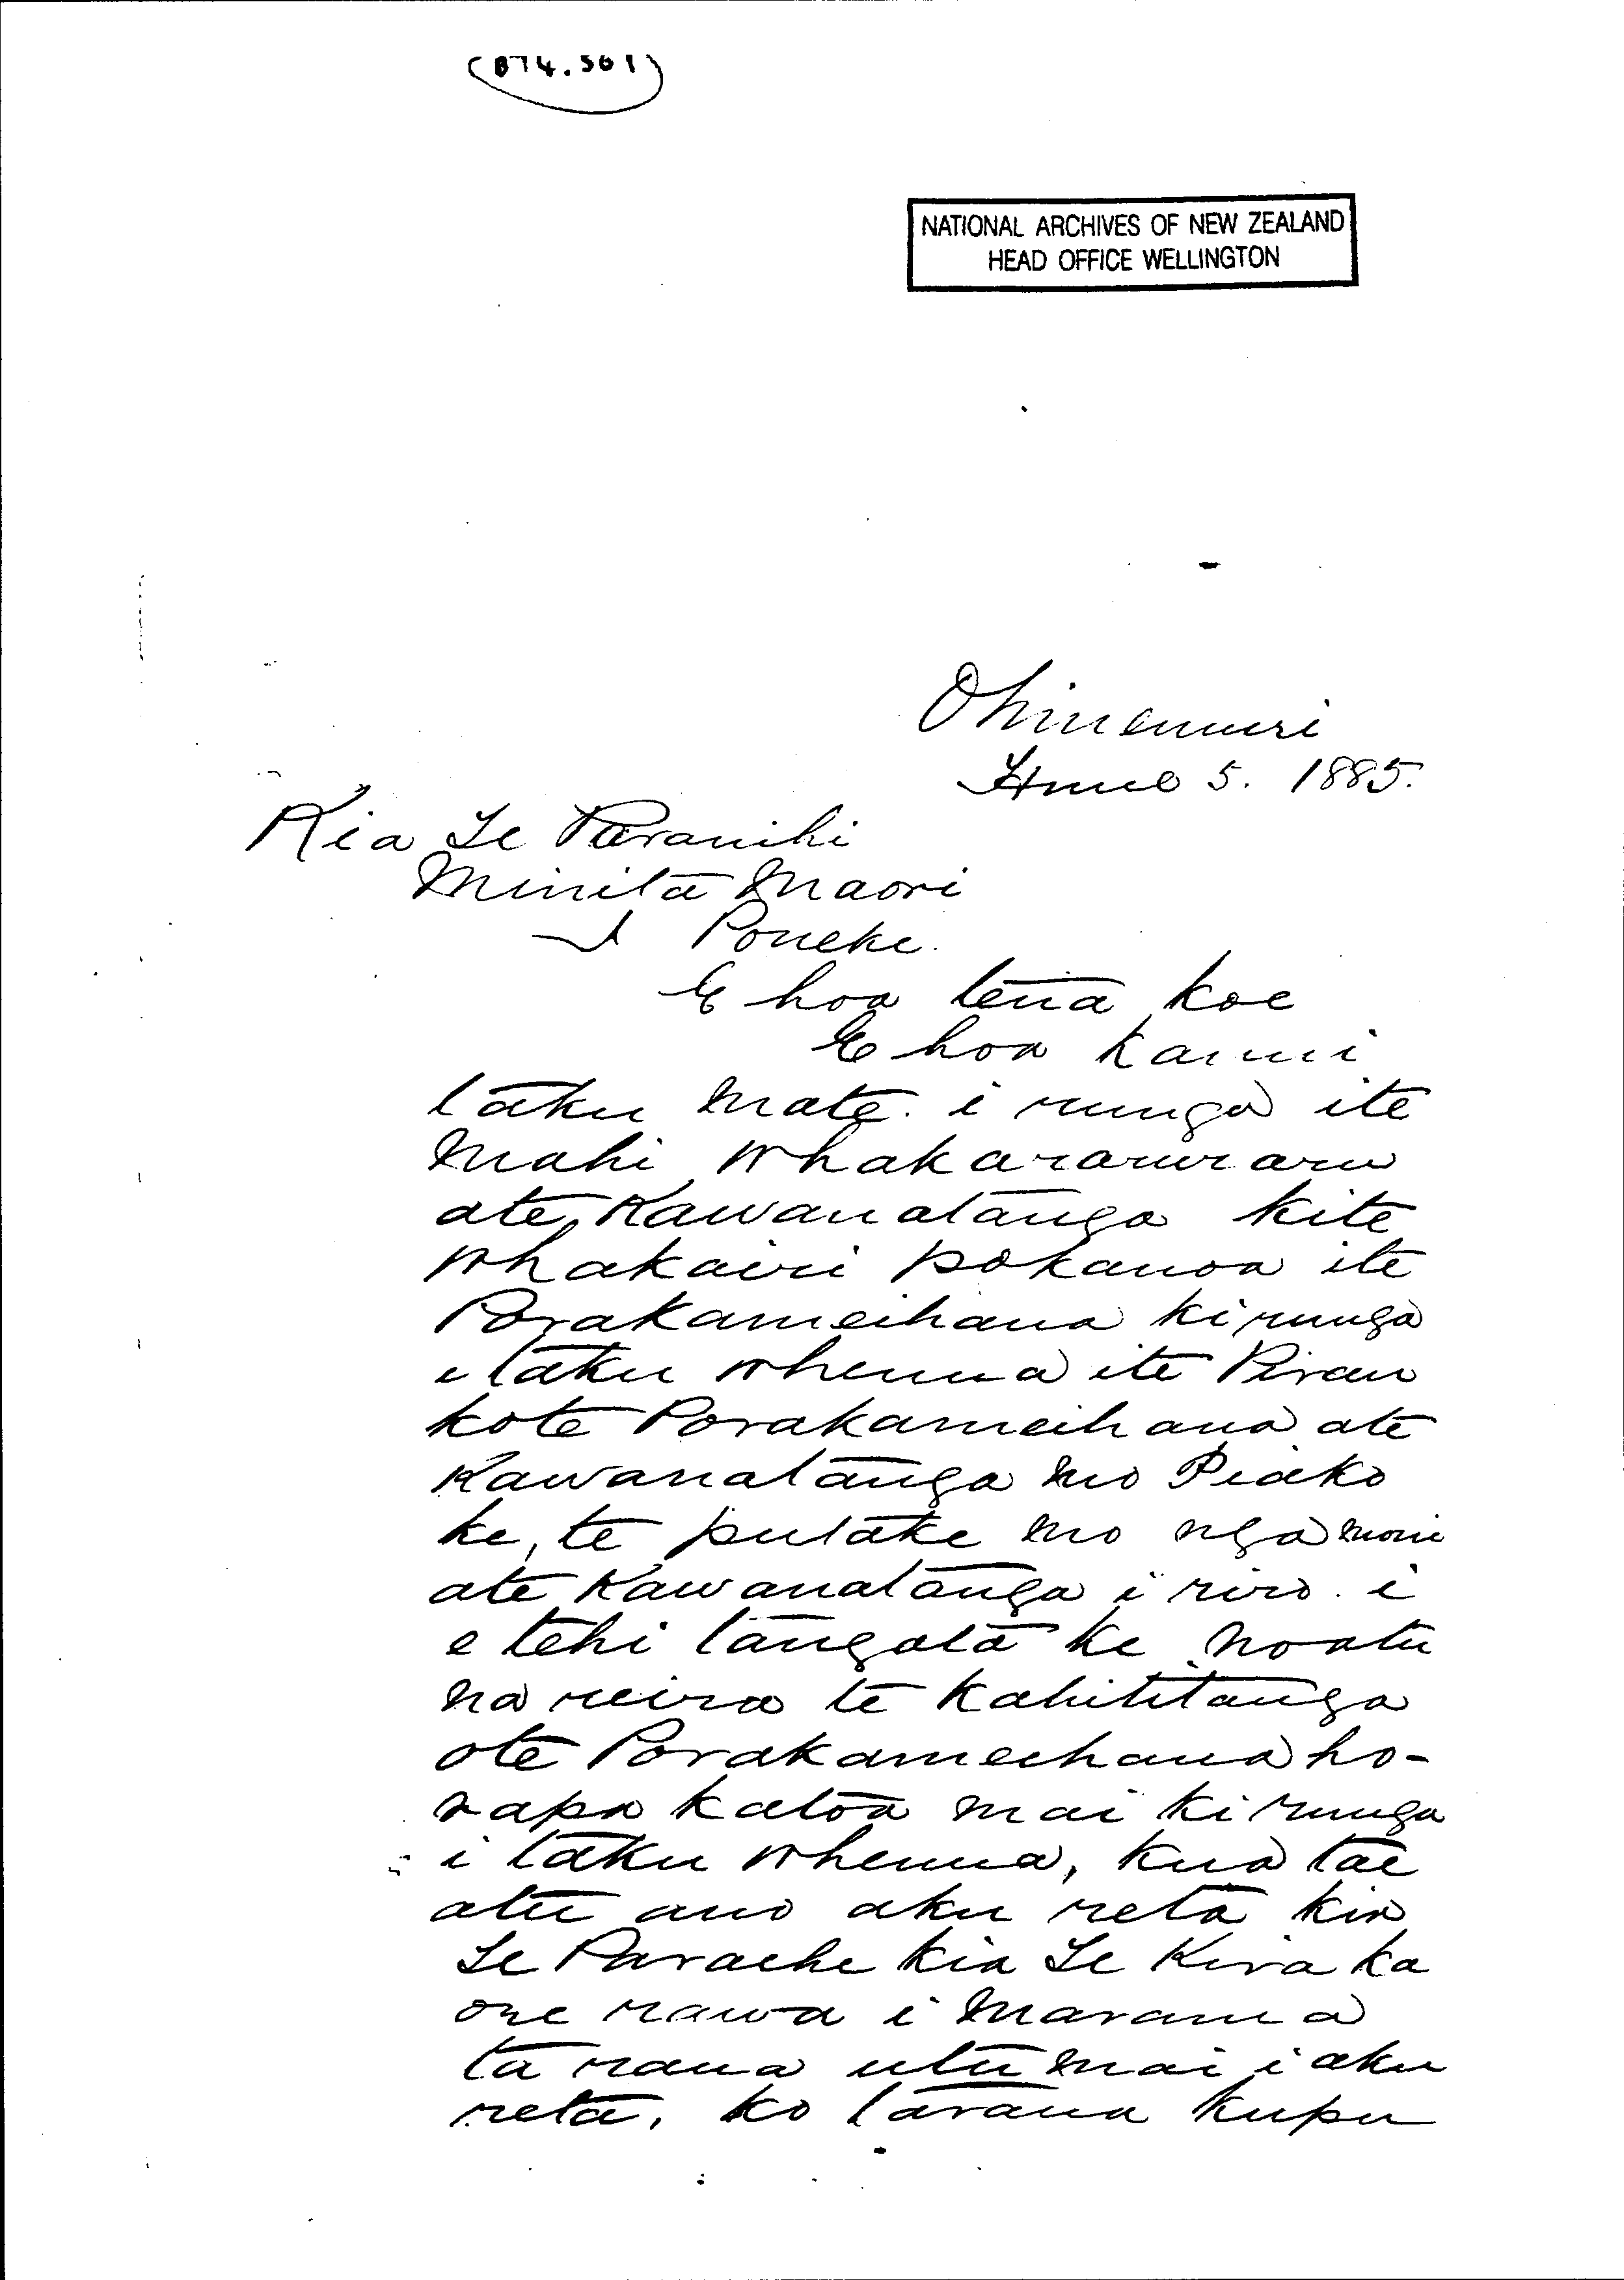 (874.561)
NATIONAL ARCHIVES OF NEW ZEALAND
HEAD OFFICE WELLINGTON
Ohinemuri
Hune 5. 1885.
Kia Te Paranihi
Minita Maori
I Poneke.
E hoa tena koe
E hoa ka nui
taku mate. i runga ite
mahi whakararuraru
ate Kawanatanga kite
whakairi pokanoa ite
Porakameihana ki runga
i taku whenua ite Pirau
kote Porakameihana ate
Kawanatanga mo Piako
ke, te putake mo nga moni
ate Kawanatanga i riro. i
e tehi tangata ke noatu
na reira te kahititanga
ote Porakameihana ho-
rapa katoa mai ki runga
i taku whenua, kua tae
atu ano aku reta kia
Te Paraehe kia Te Kira ka
ore rawa i marama
ta raua utu mai i aku
reta, ko taraua kupu